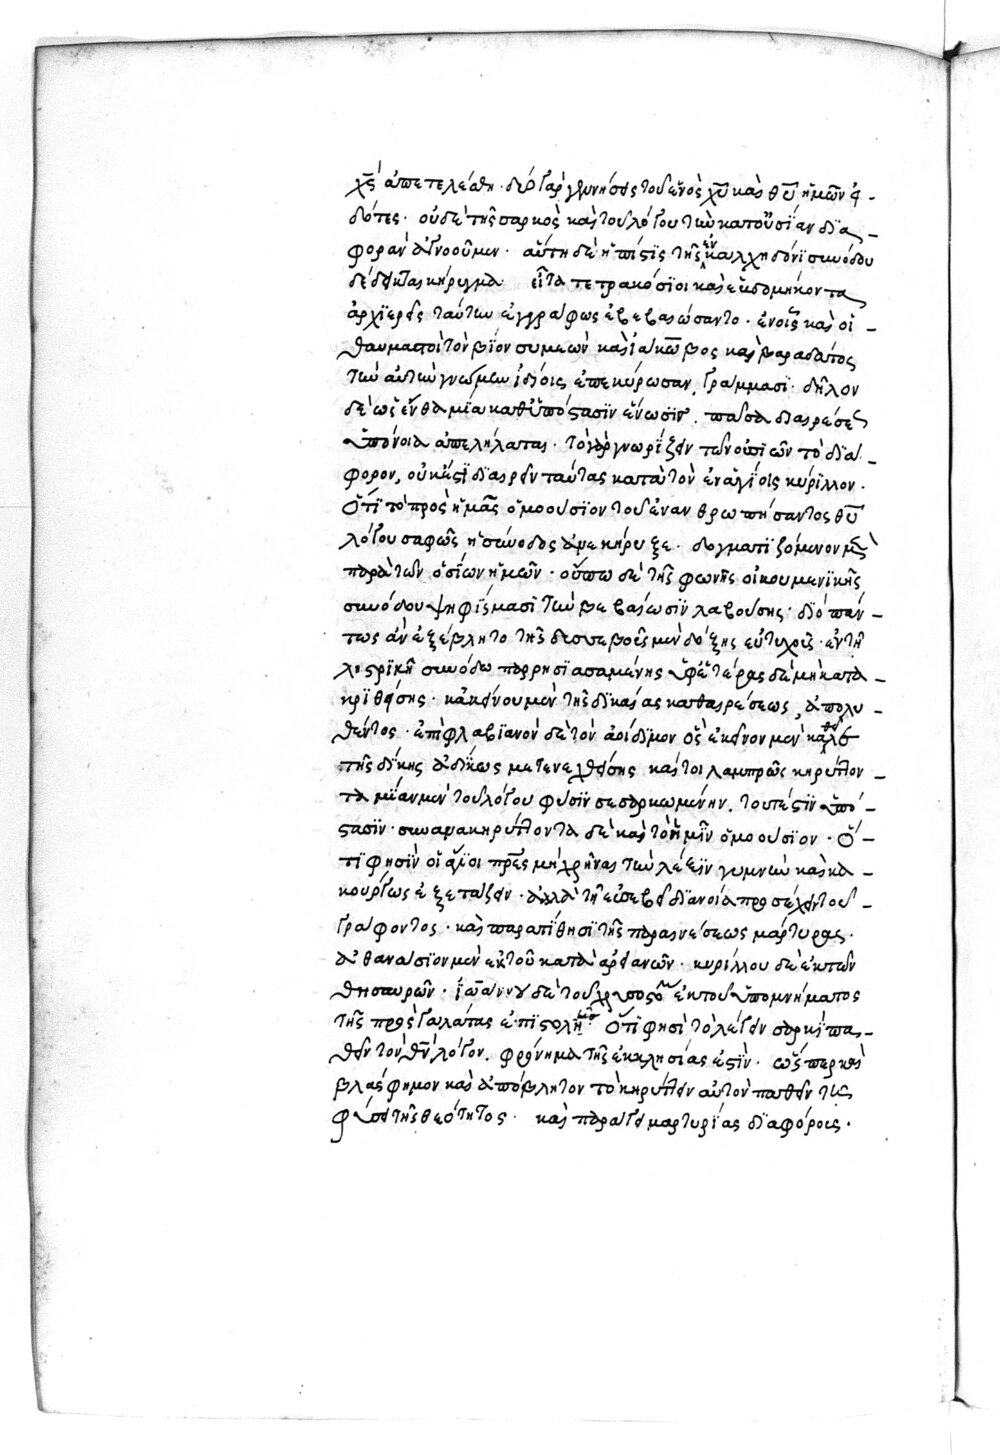 χς ἀπετελέσθη · δύο γὰρ γεννήσεις τοῦ ἑνὸς χυ καὶ θυ ἡμῶν εἰ-
δότες · οὐδὲ τῆς σαρκὸς καὶ τοῦ λόγου τὴν κατ' οὐσίαν δια-
φορὰν ἀγνοοῦμεν · αὕτη δὲ ἡ πίστις τῆς ἐν καλχηδόνι συνόδου
δέδεικται κήρυγμα εἶτα τετρακόσιοι καὶ ἑβδομήκοντα
ἀρχιερεῖς ταύτην ἐγγράφως ἐβεβαιώσαντο · ἐν οἷς καὶ οἱ
θαυμαστοὶ τὸν βίον συμεὼν καὶ ἰάκωβος καὶ βαράδατος
τὴν αὐτῶν γνώμην ἰδίοις ἐπεκύρωσαν γράμμασι · δῆλον
δὲ ὡς ἔνθα μία καθ' ὑπόστασιν ἕνωσιν, πᾶσα διαιρέσεως
ὑπόνοια ἀπελήλαται · τὸ γὰρ γνωρίζειν τῶν οὐσιῶν τὸ διά-
φορον, οὐκ ἔστι διαιρεῖν ταύτας κατὰ τὸν ἐν ἁγίοις κύριλλον ·
ὅτι τὸ πρὸς ἡμᾶς ὁμοούσιον τοῦ ἐνανθρωπήσαντος θυ
λόγου σαφῶς ἡ σύνοδος ἀνεκήρυξε · δογματιζόμενον μὲν
παρὰ τῶν ὁσίων ἡμῶν · οὔπω δὲ τῆς φωνῆς οἰκουμενικῆς
συνόδου ψηφίσμασι τὴν βεβαίωσιν λαβούσης · διὸ πάν-
τως ἂν ἐξέβλητο τῆς δυσσεβοῦς μὲν δόξης εὐτυχοῦς · ἐν τῇ
λῃστρικῇ συνόδῳ παρρησιασαμένης ὑφ' ἑτέρας δὲ μὴ κατα-
κριθείσης · κἀκείνου μὲν τῆς δικαίας καθαιρέσεως, ἀπολυ-
θέντος · ἐπὶ φλαβιανὸν δὲ τὸν ἀοίδιμον ὃς ἐκεῖνον μὲν καθεῖλε
τῆς δίκης ἀδίκως μετενεχθείσης καίτοι λαμπρῶς κηρύττον-
τα μίαν μὲν τοῦ λόγου φύσιν σεσαρκωμένην, τουτέστιν ὑπό-
στασιν · συνανακηρύττοντα δὲ καὶ τὸ ἡμῖν ὁμοούσιον · ὅ-
τι φησὶν οἱ ἅγιοι πρες μὴ χρῆναι τὴν λέξιν γυμνὴν καὶ κα-
κούργως ἐξετάζειν · ἀλλὰ τῇ εὐσεβεῖ διανοίᾳ προσέχειν τοῦ
γράφοντος · καὶ παρατίθησι τῆς παραινέσεως μάρτυρας ·
ἀθανάσιον μὲν ἐκ τοῦ κατὰ ἀρειανῶν · κυρίλλου δὲ ἐκ τῶν
θησαυρῶν · ἰωάννου δὲ τοῦ χρυσοστόμου ἐκ τοῦ ὑπομνήματος
τῆς πρὸς γαλάτας ἐπιστολῆς ὅτι φησὶ τὸ λέγειν σαρκὶ πα-
θεῖν τὸν θν λόγον, φρόνημα τῆς ἐκκλησίας ἐστίν · ὥσπερ καὶ
βλάσφημον καὶ ἀπόβλητον τὸ κηρύττειν αὐτὸν παθεῖν τῇ
φύσει τῆς θεότητος · καὶ παράγει μαρτυρίας διαφόροις ·